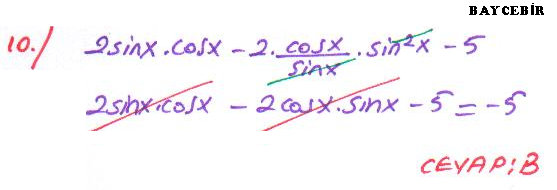 BAYCEBİR
10./ 2sinx.cosx - 2.cosx/sinx.sin²x - 5
2sinx.cosx - 2cosx.sinx - 5 = -5
CEVAP:B